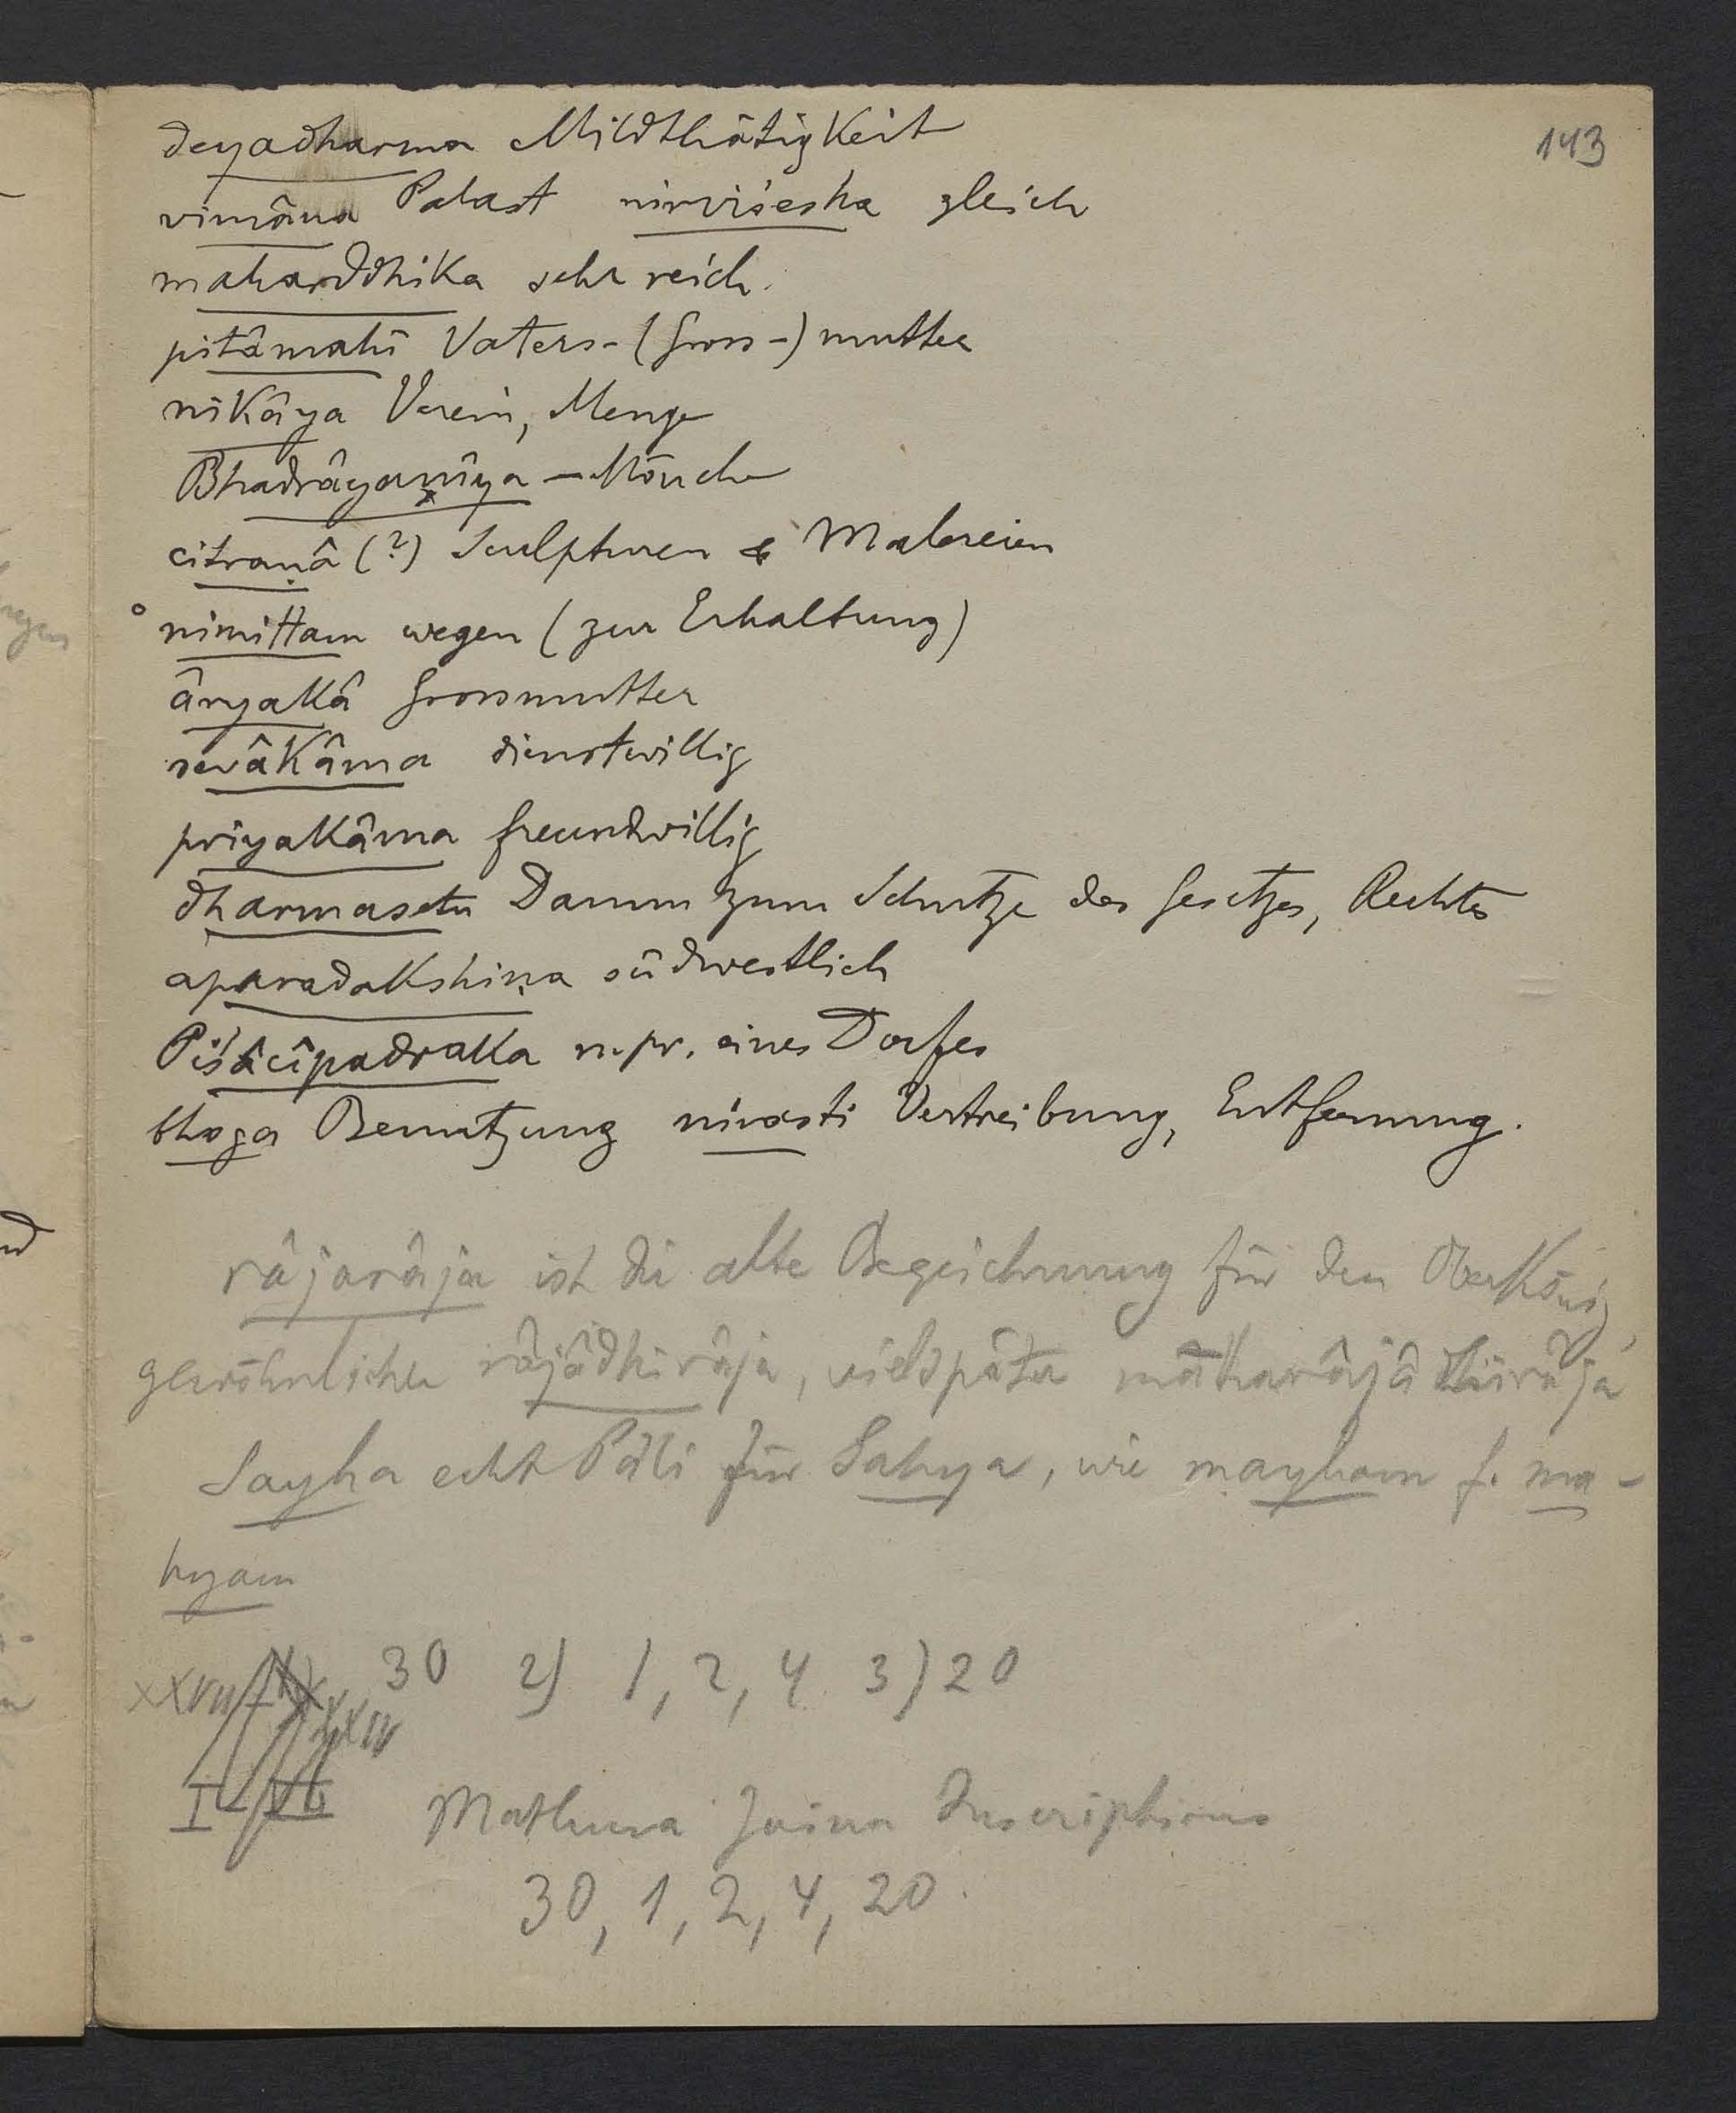 143
deyadharma Mildthätigkeit
vimâna Palast nirviśesha gleich
maharddhika sehr reich.
pitâmahî Vaters-(Gross-)mutter
nikâya Verein, Menge
Bhadrâyanîya - Mönche
citraṇâ (?) Sculpturen & Malereien
°nimittam wegen (zur Erhaltung)
âryakâ Grossmutter
sevâkâma dienstwillig
priyakâma freundwillig
dharmasetu Damm zum Schutze des Gesetzes, Rechtes
aparadakshiṇa südwestlich
Piśâcîpadraka n. pr. eines Dorfes
bhoga Benutzung nirasti Vertreibung, Entfernung.
râjarâja ist die alte Bezeichnung für den Oberkönig,
gewöhnlicher râjâdhirâja, viel später mahârâjâdhirâja
Sayha echt Pâli für Sahya, wie mayham f. ma-
hyam
XXVII 30 2) 1, 2, 4 3) 20
XXIV
I-VI Mathura Jaina Inscriptions
30, 1, 2, 4, 20.